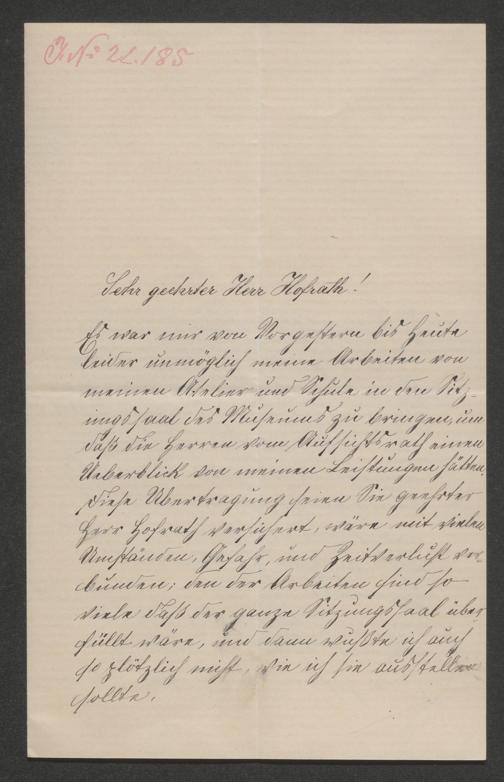 J. No 21.185
Sehr geehrter Herr Hofrath!
Es war mir von Vorgestern bis Heute
leider unmöglich meine Arbeiten von
meinen Atelier und Schule in den Sitz-
ungssaal des Museums zu bringen, um
daß die Herren vom Aufsichtsrath einen
Ueberblick von meinen Leistungen hätten.
Diese Ubertragung seien Sie geehrter
Herr Hofrath versichert, wäre mit vielen
Umständen, Gefahr, und Zeitverlust ver-
bunden; den der Arbeiten sind so
viele daß der ganze Sitzungssaal über
füllt wäre, und dann wußte ich auch
so plötzlich nicht, wie ich sie ausstellen
sollte.